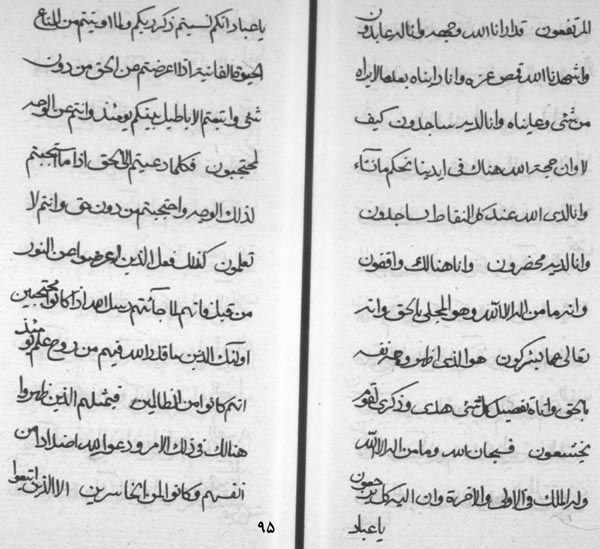 المرتفعون قد ارانا الله وجهه وانا له عابدون
واشهدنا الله قمص عزه وانا رايناه بعلم لا يراه
من شئ وعليناه وانا لديه ساجدون كيف
لا وان حجة الله هناك في ايدينا نحكم ما نشاء
وانا لدى الله عند كل النقاط ساجدون
وانا لديه محضرون وانا هنالك واقفون
وانه ما من اله الا الله وهو المجلى بالحق وانه
تعالى عما يشركون هو الذي اظهر وجه نفسه
بالحق واتاه تفصيل كل شئ هدى وذكرى لقوم
يخشعون فسبحان الله وما من اله الا الله
وله الملك في الاولى والاخرة وان اليه كل يرجعون
يا عباد
يا عباد انكم نسيتم ذكر ربكم ولما اوتيتم من المتاع
الحيوة الفانية اذا اعرضتم عن الحق من دون
شئ واتبعتم الاباطيل بينكم يومئذ وانتم عن الوجه
لمحتجبون فكلما دعيتم الى الحق اذا ما استجبتم
لذلك الوجه واحتجبتم من دون حق وانتم لا
تعلمون كذلك فعل الذين اعرضوا عن النور
من قبل فانهم لما جائتهم رسل الله اذا كانوا محتجبين
اولئك الذين ما قال الله فيهم من روح علم يومئذ
انهم كانوا من الظالمين فبمثلهم الذين ظهروا
هنالك في ذلك الامر ودعوا لله اضدادا من
انفسهم وكانوا لمن الخاسرين الا الذين اتبعوا
٩٥